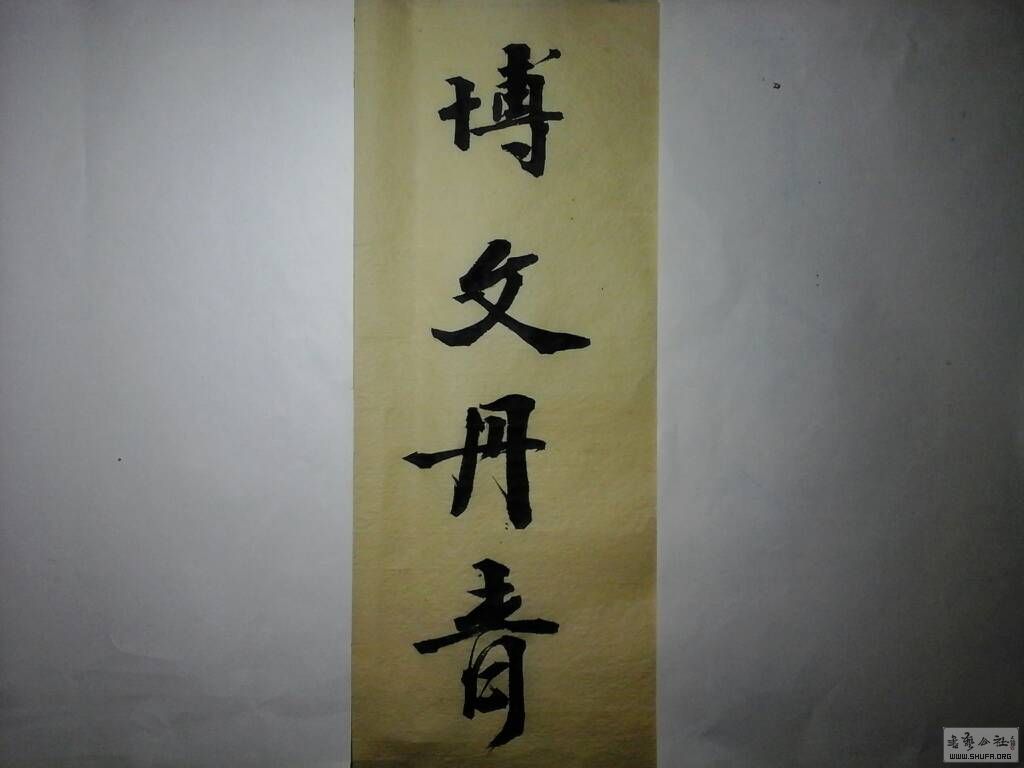 博文丹青
书艺公社
WWW.SHUFA.ORG